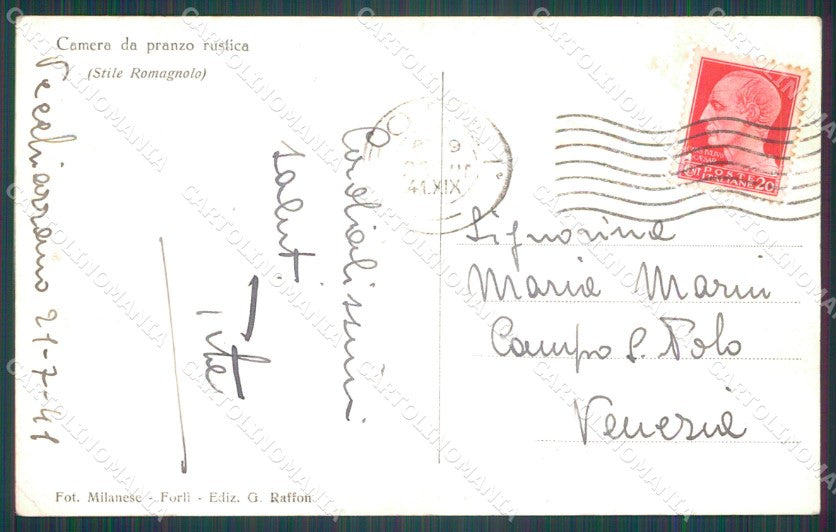 Camera da pranzo rustica
(Stile Romagnolo)
21-7-41
Cordialissimi
saluti
Signorina
Maria Marin
Campo S. Polo
Venezia
41.XIX
POSTE
ITALIANE
CENT 20
Fot. Milanese - Forlì - Ediz. G. Raffoni
CARTOLINOMANIA